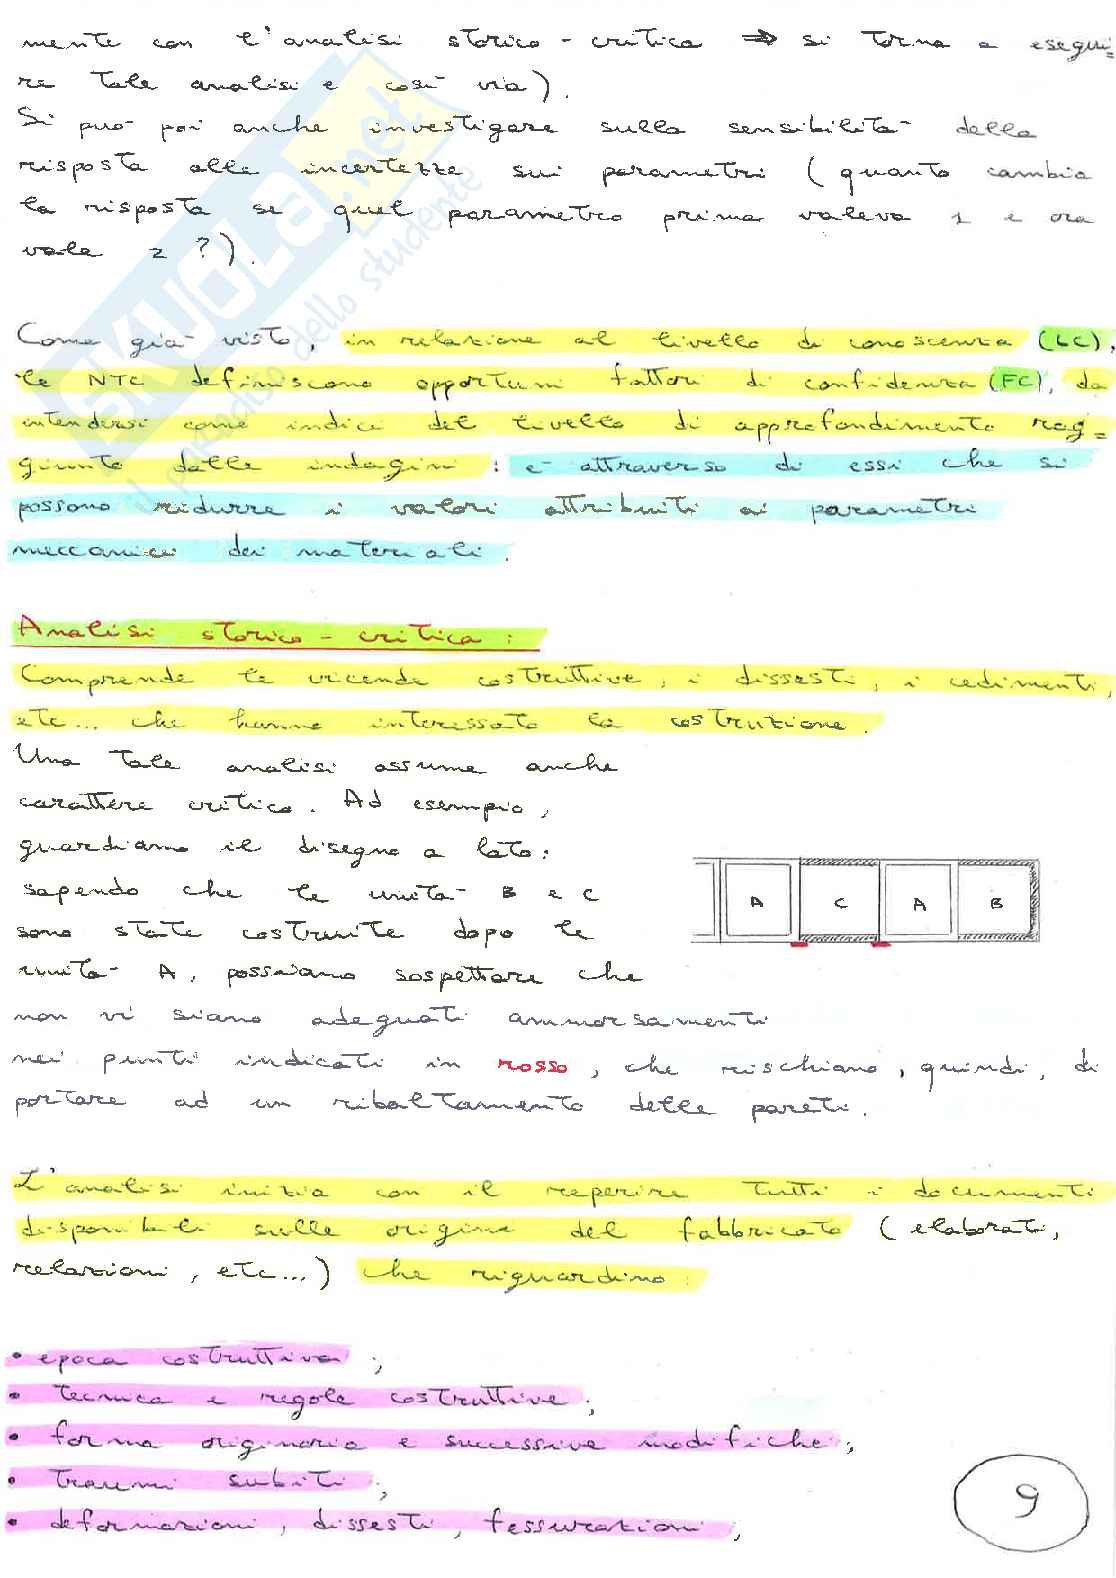 mente con l'analisi storico-critica => si torna a esegui=
re tale analisi e così via).
Si può poi anche investigare sulla sensibilità della
risposta alle incertezze sui parametri (quanto cambia
la risposta se quel parametro prima valeva 1 e ora
vale 2 ?).
Come già visto, in relazione al livello di conoscenza (LC),
le NTC definiscono opportuni fattori di confidenza (FC), da
intendersi come indici del livello di approfondimento rag=
giunto dalle indagini : è attraverso di essi che si
possono ridurre i valori attribuiti ai parametri
meccanici dei materiali.
Analisi storico-critica :
Comprende le vicende costruttive, i dissesti, i cedimenti,
etc... che hanno interessato la costruzione.
Una tale analisi assume anche
carattere critico. Ad esempio,
guardiamo il disegno a lato:
sapendo che le unità B e C
sono state costruite dopo le
unità A, possiamo sospettare che
non vi siano adeguati ammorsamenti
nei punti indicati in rosso, che rischiano, quindi, di
portare ad un ribaltamento delle pareti.
A C A B
L'analisi inizia con il reperire tutti i documenti
disponibili sulle origine del fabbricato (elaborati,
relazioni, etc...) che riguardino:
• epoca costruttiva ;
• tecnica e regole costruttive ;
• forma originaria e successive modifiche ;
• traumi subiti ;
• deformazioni, dissesti, fessurazioni ;
9
SKUOLA.net
il paradiso dello studente